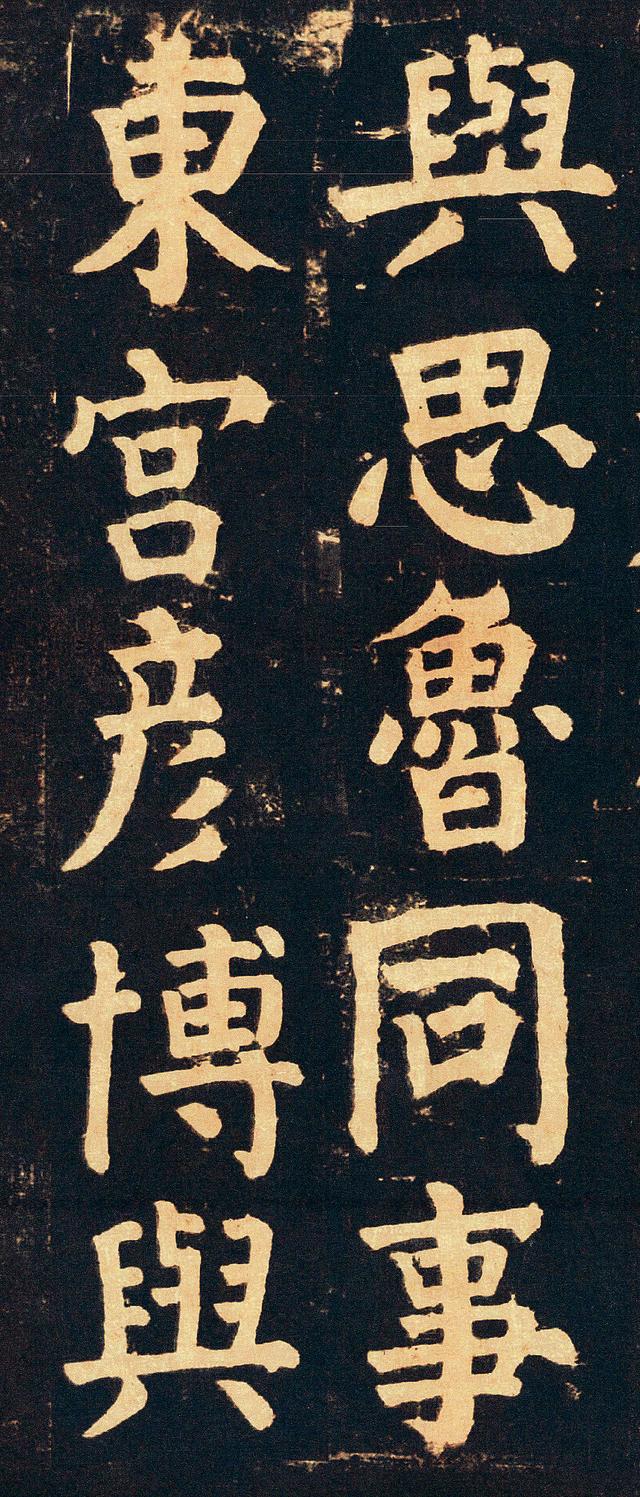 與思魯同事
東宮彥博與